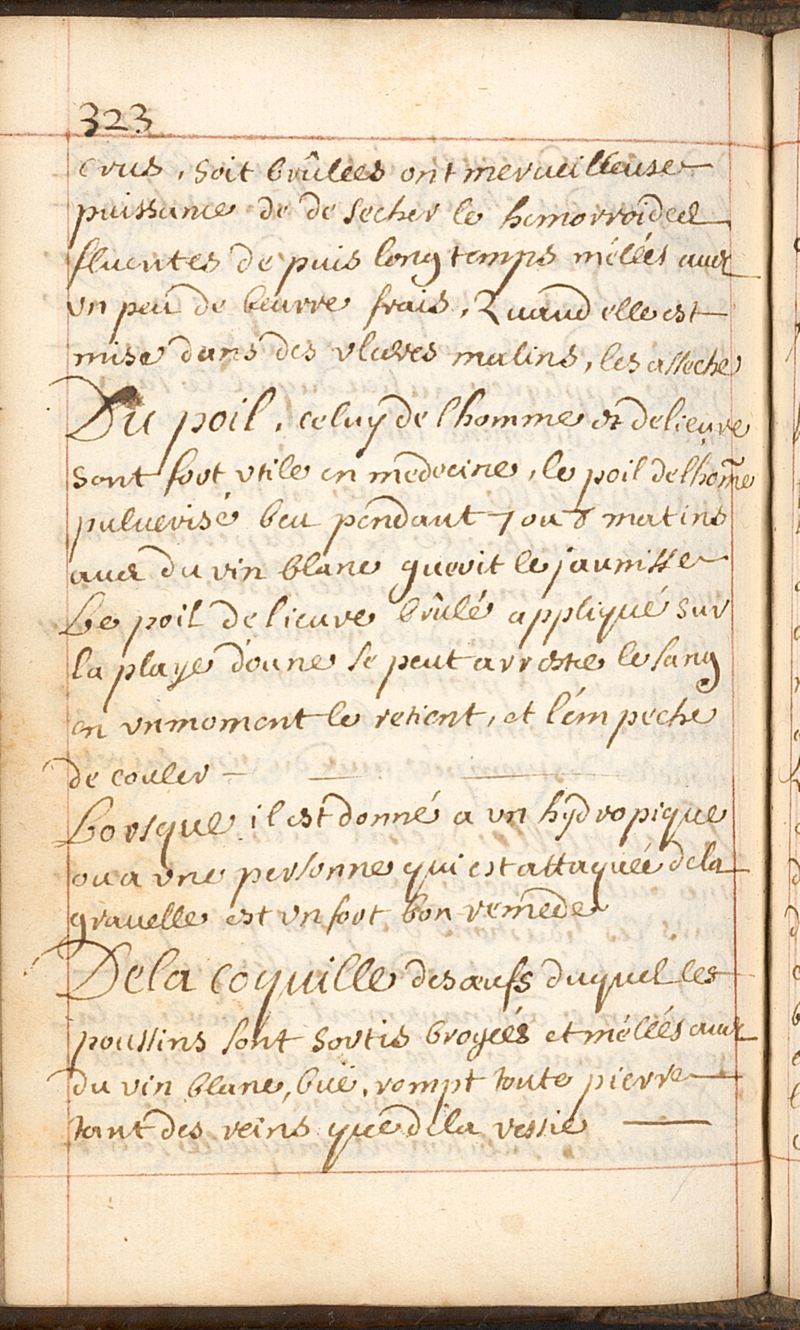 323
crus, soit brûlées ont merueilleuse
puissance de de secher le hemorroides
fluentes de puis long temps mélléz auec
vn peu de beurre frais, Quand elle est
mise dans des vlceres malins, les asseche
Du poil, celuy de l'homme et de lieure
sont fort vtile en medecine, le poil de lhom̃e
puluerisé beu pendant 7 ou 8 matins
auec du vin blanc guerit le jaunisse
Le poil de lieure brûlé appliqué sur
la playe d'oune se peut arreste le sang
en vn moment le retient, et l'ém peche
de couler —
Lorsque il est donné a vn hydropique
ou a vne personne qui est attaquée de la
grauelle est vn fort bon remede
De la coquille des œufs duquel les
poussins sont sortis broyéés et méllées auec
du vin blanc, buë, rompt toute pierre
tant des reins que de la vessie —